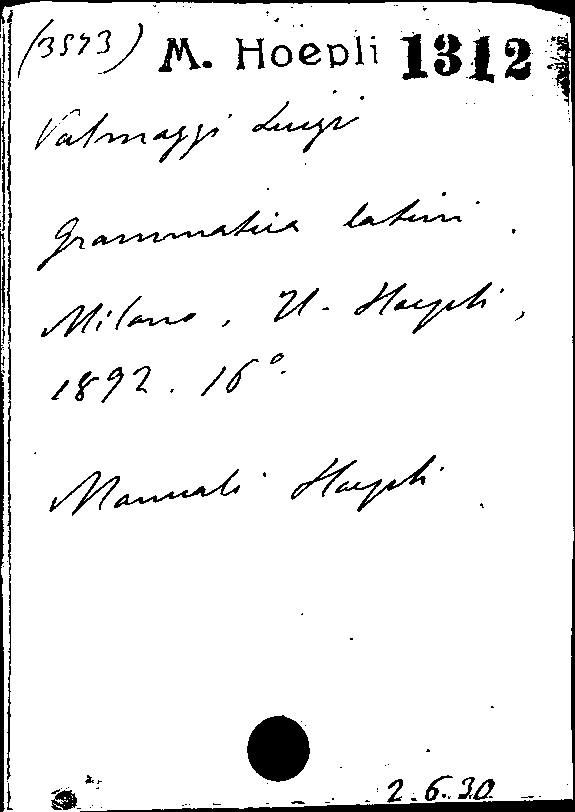 (3593) M. Hoepli 1312
Valmaggi Luigi
Grammatica latini.
Milano, U. Hoepli,
1892. 16°.
Manuali Hoepli.
2.6.30